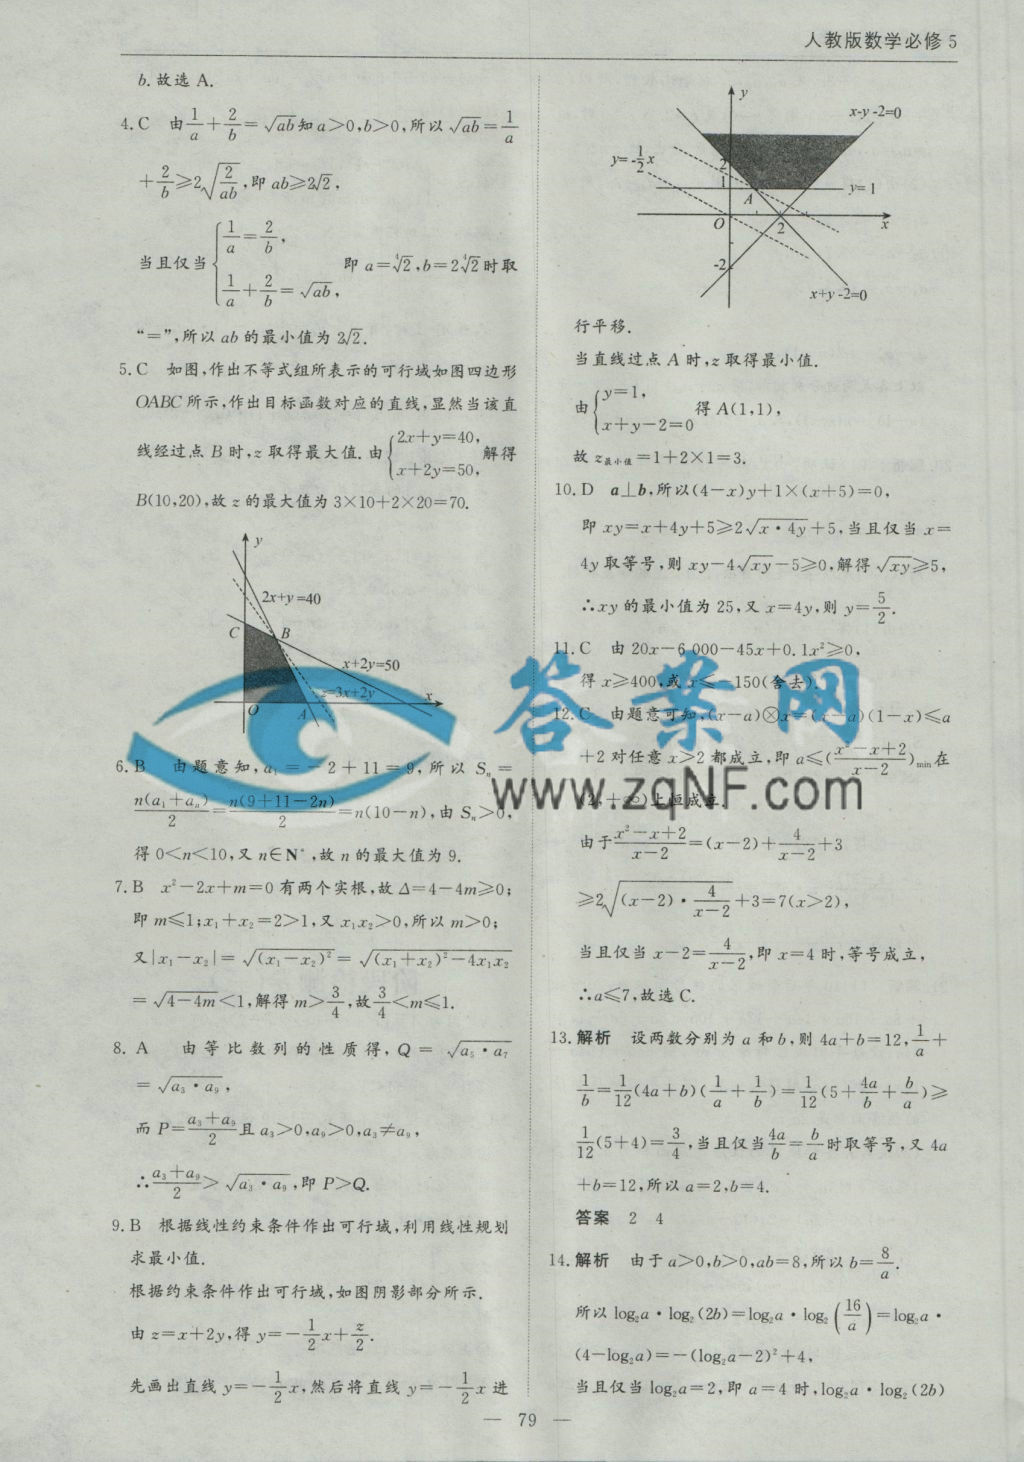 人教版数学必修 5
b.故选 A.
4.C 由1/a+2/b=√ab知 a>0,b>0,所以 √ab=1/a
+2/b≥2√(2/ab),即 ab≥2√2,
当且仅当{1/a=2/b, 1/a+2/b=√ab, 即 a=∜2,b=2∜2时取
“=”,所以 ab 的最小值为 2√2.
5.C 如图,作出不等式组所表示的可行域如图四边形
OABC 所示,作出目标函数对应的直线,显然当该直
线经过点 B 时,z 取得最大值.由{2x+y=40, x+2y=50, 解得
B(10,20),故 z 的最大值为 3×10+2×20=70.
y
2x+y=40
C
B
x+2y=50
z=3x+2y
x
O
A
6.B 由题意知,a₁=-2+11=9,所以 Sₙ=
n(a₁+aₙ)/2=n(9+11-2n)/2=n(10-n),由 Sₙ>0,
得 0<n<10,又 n∈N*,故 n 的最大值为 9.
7.B x²-2x+m=0 有两个实根,故 Δ=4-4m≥0;
即 m≤1;x₁+x₂=2>1,又 x₁x₂>0,所以 m>0;
又|x₁-x₂|=√(x₁-x₂)²=√(x₁+x₂)²-4x₁x₂
=√4-4m<1,解得 m>3/4,故3/4<m≤1.
8. A 由等比数列的性质得,Q=√a₅·a₇
=√a₃·a₉,
而 P=(a₃+a₉)/2且 a₃>0,a₉>0,a₃≠a₉,
∴(a₃+a₉)/2>√a₃·a₉,即 P>Q.
9.B 根据线性约束条件作出可行域,利用线性规划
求最小值.
根据约束条件作出可行域,如图阴影部分所示.
由 z=x+2y,得 y=-1/2x+z/2.
先画出直线 y=-1/2x,然后将直线 y=-1/2x 进
y
x-y-2=0
y=-1/2x
2
1
y=1
A
O
2
x
-2
x+y-2=0
行平移.
当直线过点 A 时,z 取得最小值.
由{y=1, x+y-2=0 得 A(1,1),
故 z最小值=1+2×1=3.
10.D a⊥b,所以(4-x)y+1×(x+5)=0,
即 xy=x+4y+5≥2√x·4y+5,当且仅当 x=
4y 取等号,则 xy-4√xy-5≥0,解得 √xy≥5,
∴xy 的最小值为 25,又 x=4y,则 y=5/2.
11.C 由 20x-6 000-45x+0.1x²≥0,
得 x≥400,或 x≤-150(舍去).
12.C 由题意可知,(x-a)⊗x=(x-a)(1-x)≤a
+2 对任意 x>2 都成立,即 a≤((x²-x+2)/(x-2))min在
(2,+∞)上恒成立.
由于(x²-x+2)/(x-2)=(x-2)+4/(x-2)+3
≥2√((x-2)·4/(x-2))+3=7(x>2),
当且仅当 x-2=4/(x-2),即 x=4 时,等号成立,
∴a≤7,故选 C.
13.解析 设两数分别为 a 和 b,则 4a+b=12,1/a+
1/b=1/12(4a+b)(1/a+1/b)=1/12(5+4a/b+b/a)≥
1/12(5+4)=3/4,当且仅当4a/b=b/a时取等号,又 4a
+b=12,所以 a=2,b=4.
答案 2 4
14.解析 由于 a>0,b>0,ab=8,所以 b=8/a.
所以 log₂a·log₂(2b)=log₂a·log₂(16/a)=log₂a·
(4-log₂a)=-(log₂a-2)²+4,
当且仅当 log₂a=2,即 a=4 时,log₂a·log₂(2b)
— 79 —
答案网
www.zqNF.com